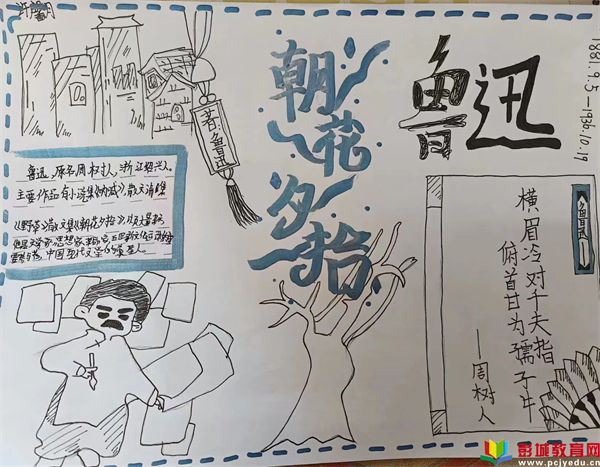 朝花夕拾
鲁迅
1881.9.5—1936.10.19
著鲁迅
鲁迅,原名周树人,浙江绍兴人。
主要作品有小说集《呐喊》,散文诗集
《野草》散文集《朝花夕拾》
中国现代文学的奠基人。
鲁迅
横眉冷对千夫指
俯首甘为孺子牛
——周树人
彭城教育网
www.pcjyedu.cn